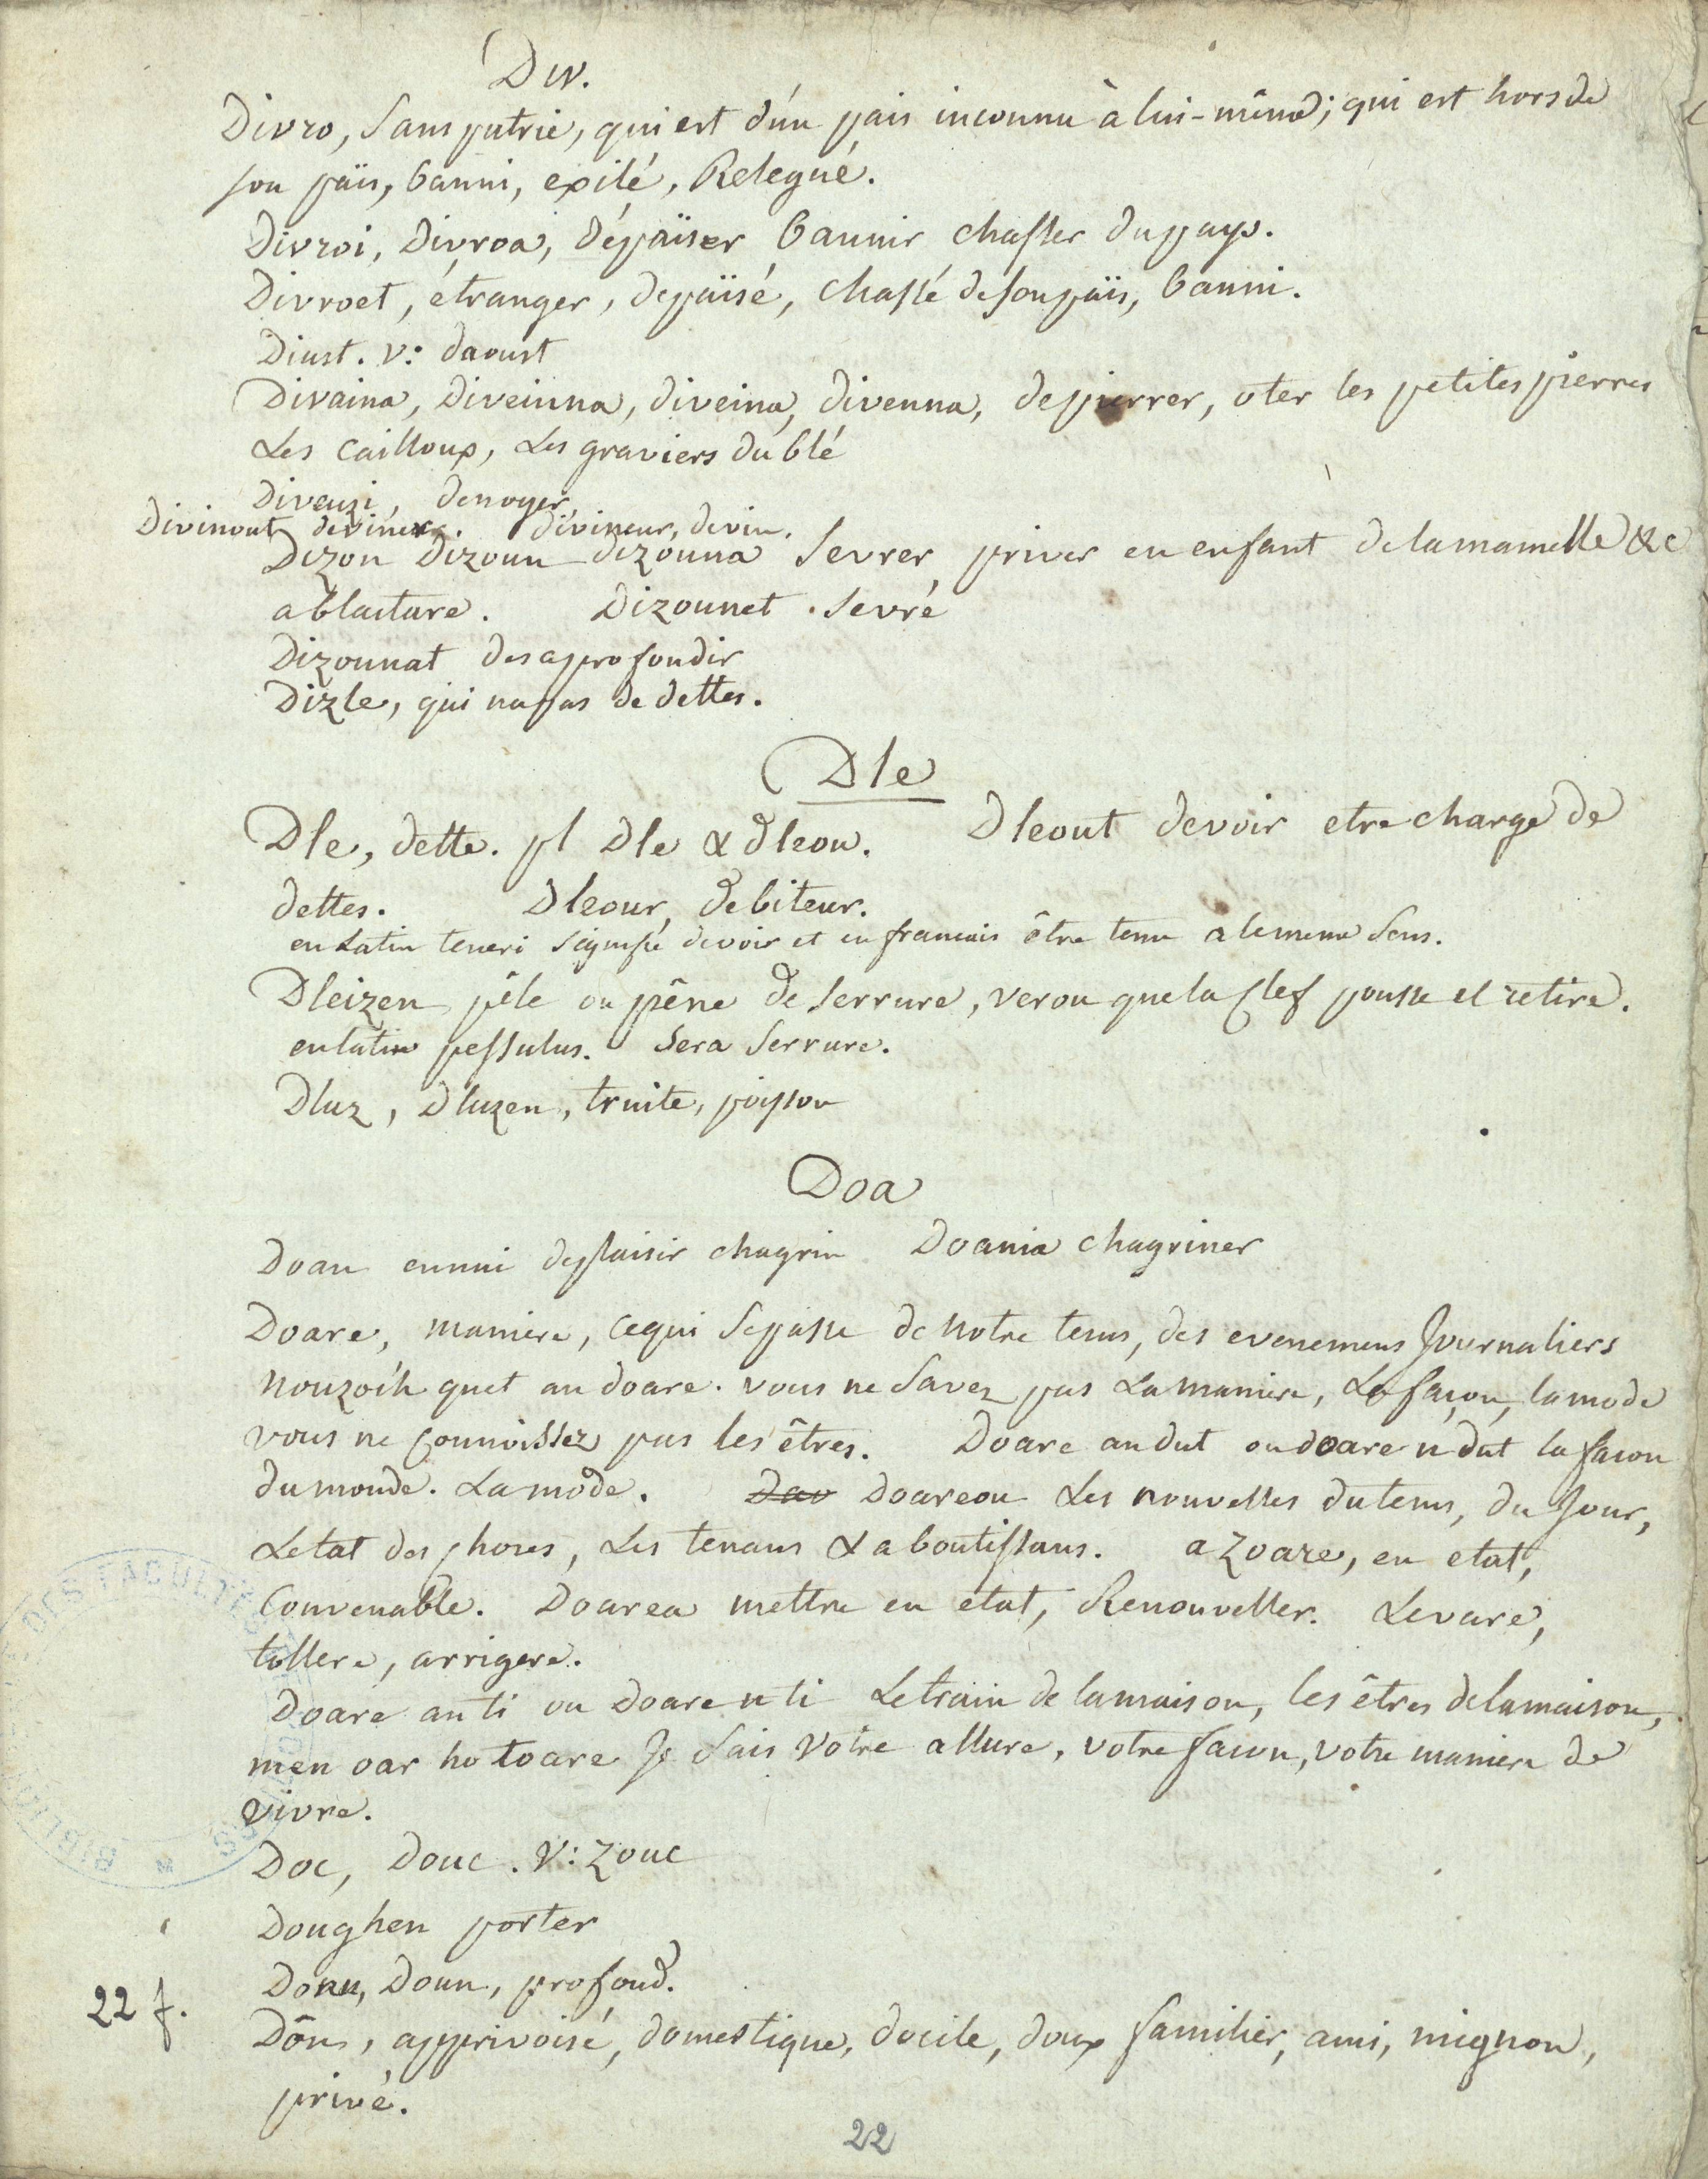 Div.
Divro, sans patrie, qui est d'un païs inconnu à lui-même; qui est hors de
son païs, banni, exilé, Relegué.
Divroi, Divroa, dépaïser bannir chasser du pays.
Divroet, étranger, depaïsé, chassé de son païs, banni.
Diust. v: daoust
Divaina, Diveinna, diveina, divenna, depierrer, oter les petites pierres
Les cailloux, Les graviers du blé
Diveuzi, denoyer
Divinout deviner. divineur, devin.
Dizon Dizoun dizouna Sevrer priver en enfant de la mamelle &c
ablactare. Dizounet . sevré
Dizounnat desaprofondir
Dizle, qui na pas de dettes.
Dle
Dle, dette. pl Dle & dleou. Dleout devoir etre chargé de
dettes. Dleour, debiteur.
en Latin teneri signifie devoir et en francais être tenu a le meme sens.
Dleizen pêle ou pêne de serrure, verou que la Clef pousse et retire.
en latin pessulus. Sera serrure.
Dluz, Dluzen, truite, poisson
Doa
Doan ennui deplaisir chagrin Doania chagriner
Doare, maniere, ce qui se passe de notre tems, des evenemens Journaliers
Nouzoc'h quet an doare. vous ne savez pas La maniere, La façon, la mode
vous ne connoissez pas les êtres. Doare an dut ou doare n dut la facon
du monde. La mode. Dav Doareou Les nouvelles du tems, du Jour,
Letat des choses, Les tenans & aboutissans. a zoare, en etat,
Convenable. Doarea mettre en etat, Renouveller. Levare,
tollere, arrigere.
Doare an ti ou Doare n ti Le train de la maison, les êtres de la maison,
men oar ho toare Je sais Votre allure, votre facon, votre maniere de
vivre.
Doc, Douc. V: Zouc
Doughen porter
Donn, Doun, profond.
22 f.
Dôn, apprivoisé, domestique, docile, doux familier, ami, mignon,
privé.
22